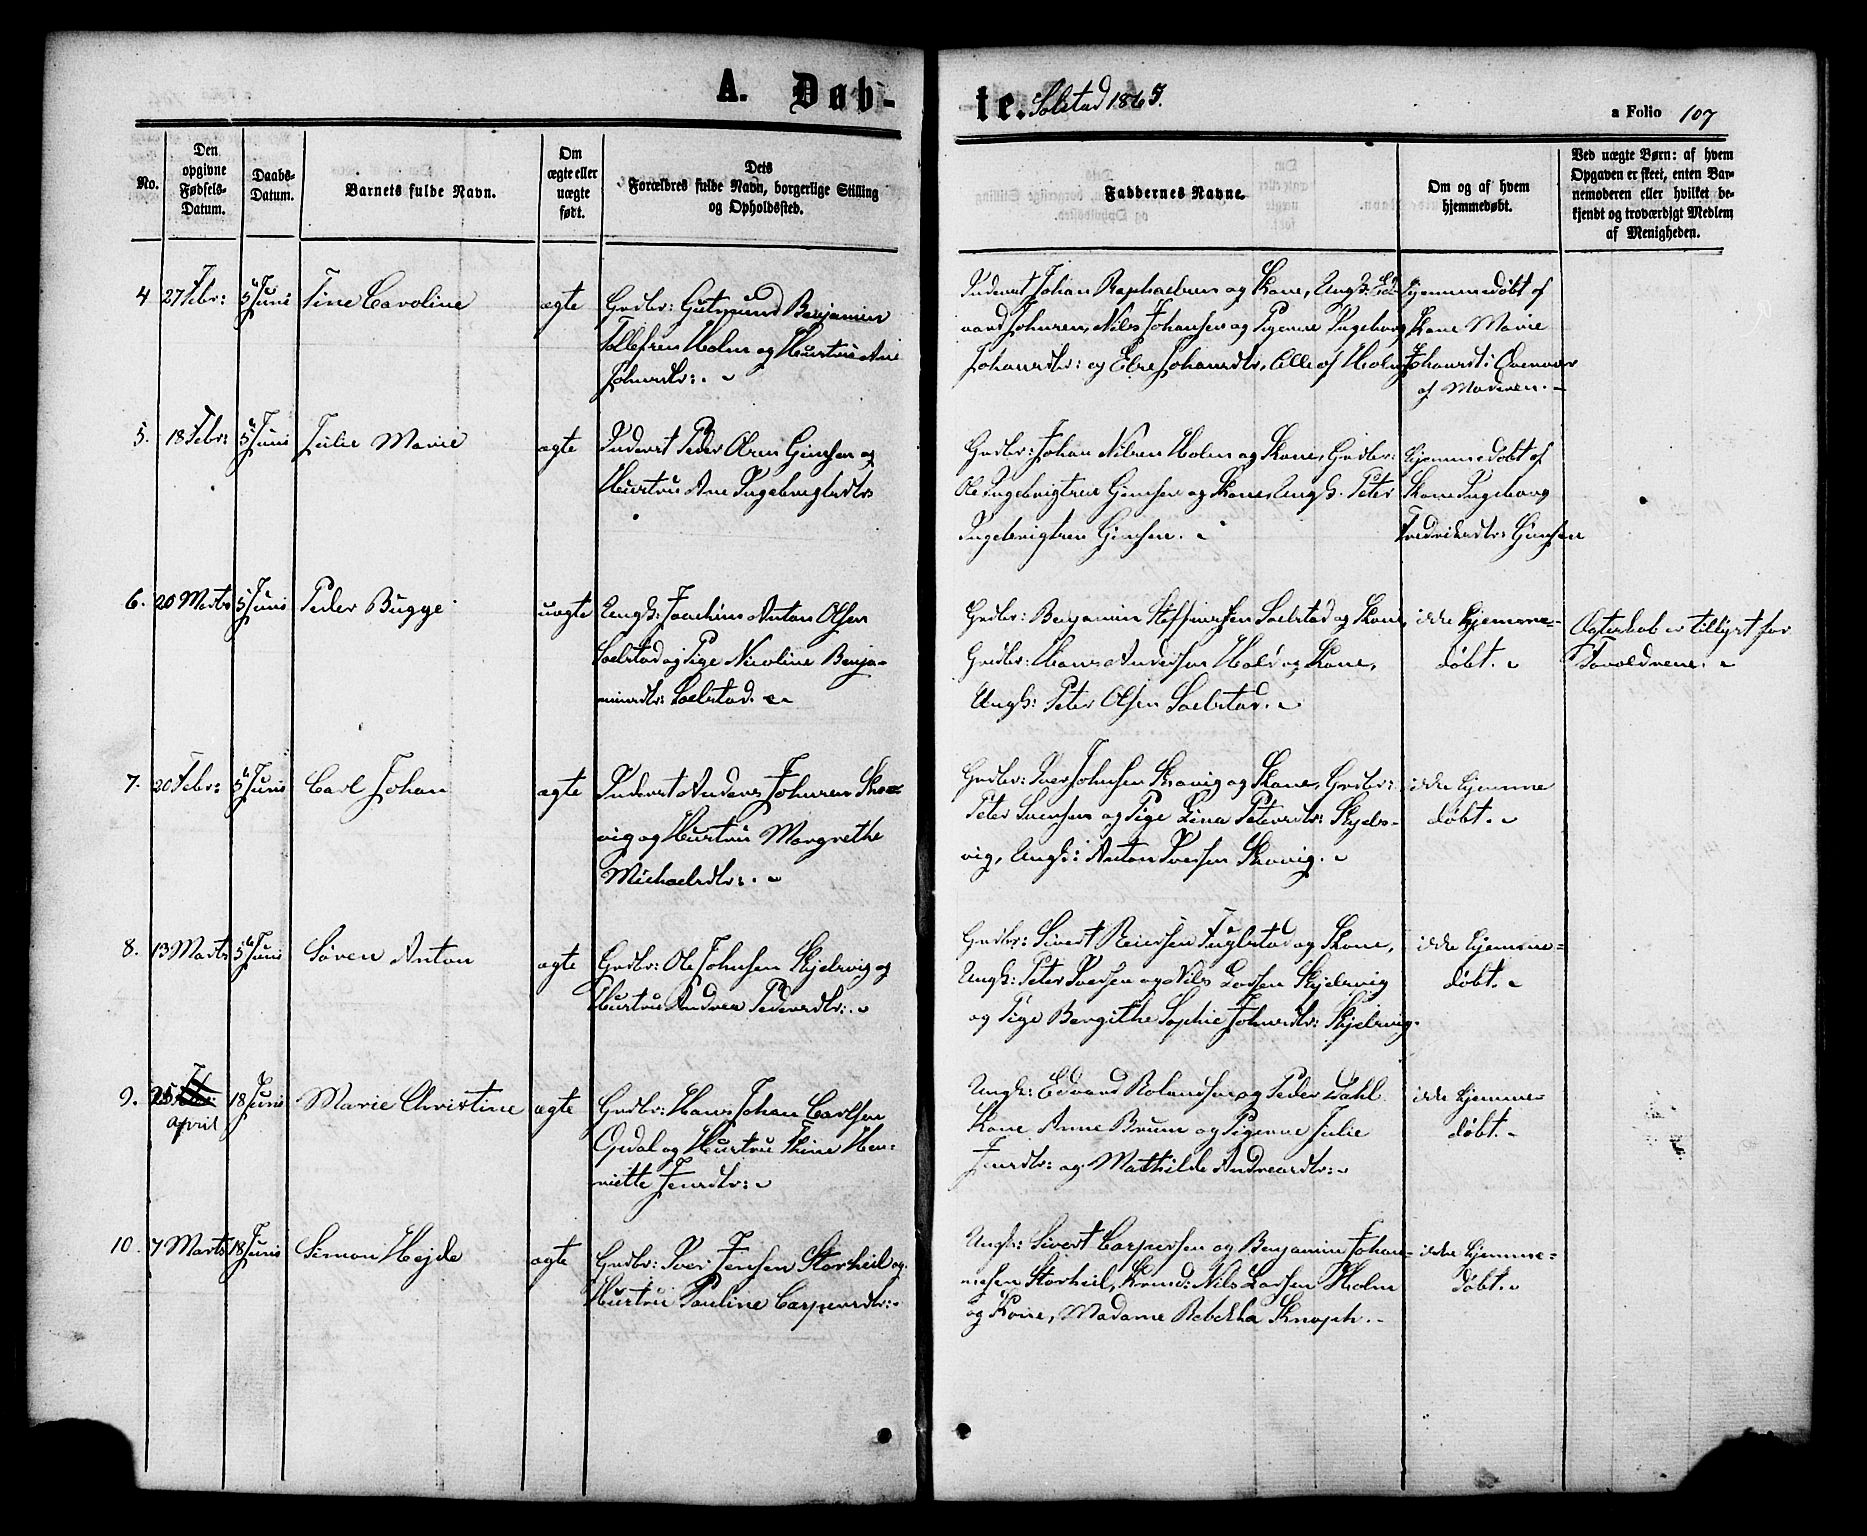 A. Døb-
te. Solstad 1865.
a Folio 107
No.
Den opgivne Fødsels-Datum.
Daabs-Datum.
Barnets fulde Navn.
Om ægte eller uægte født.
Dets Forældres fulde Navn, borgerlige Stilling og Opholdssted.
Faddernes Navne.
Om og af hvem hjemmedøbt.
Ved uægte Børn: af hvem Opgaven er skeet, enten Barnemoderen eller hvilket bekjendt og troværdigt Medlem af Menigheden.
4 27 Febr: 5 Juni Tine Caroline ægte
Grdbr: Gutmund Benjamin
Tollefsen Holm og Hustru Ane
Johnsdtr:
Inderst Johan Raphaelsen og Kone, Ungk: Ed-
vard Johnsen, Nils Johansen og Pigerne Ingeborg
Johansdtr: og Else Johansdtr, Alle af Holm
Hjemmedøbt af
Kone Marie
Johansdt:
af Moderen.
5. 18 Febr: 5 Juni Julie Marie ægte
Inderst Peder Olsen Gimsen og
Hustru Ane Ingebrigtsdtr
Grdbr: Johan Nilsen Holm og Kone, Grdbr:
Ole Ingebrigtsen Gimsen og Kone, Ungk. Peter
Ingebrigtsen Gimsen.
hjemmedøbt af
Kone Ingeborg
Fredriksdtr: Gimsen
6. 20 Marts 5 Juni Peder Bugge uægte
Ungk: Joachim Anton Olsen
Soelstad og Pige Nicoline Benja-
minsdtr: Soelstad.
Grdbr: Benjamin Steffensen Soelstad og Kone,
Grdbr: Hans Andersen Hold og Kone,
Ungk: Peter Olsen Soelstad.
ikke hjemme-
døbt.
Ægteskab er tillyst for
Forældrene.
7. 20 Febr: 5 Juni Carl Johan ægte
Inderst Anders Johnsen Skra-
vig og Hustru Margrethe
Michaelsdtr:.
Grdbr: Iver Johnsen Skravig og Kone, Grdbr:
Peter Svensen og Pige Lina Petersdtr: Skjels-
vig, Ungk: Anton Iversen Skravig.
ikke hjemme
døbt.
8. 13 Marts 5 Juni Søren Anton ægte
Grdbr: Ole Johnsen Skjelsvig og
Hustru Andrea Pedersdtr:.
Grdbr: Sivert Reiersen Fuglstad og Kone,
Ungk: Peter Iversen og Nils Larsen Skjelsvig
og Pige Bergithe Sophie Johnsdtr: Skjelsvig.
ikke hjemme-
døbt.
9. 25 April 18 Juni Marie Christine ægte
Grdbr: Hans Johan Carlsen
Opdal og Hustru Thine Hen-
riette Jensdtr:
Ungk: Edvard Rolandsen og Peder Dahl
Kone Anne Bruun og Pigerne Julie
Jensdtr: og Mathilde Andreasdtr:
ikke hjemme-
døbt.
10. 7 Marts 18 Juni Simon Hejde ægte
Grdbr: Iver Jensen Storheil og
Hustru Pauline Caspersdtr:
Ungk: Sivert Caspersen og Benjamin Johan-
nesen Storheil, Nils Larsen Holm
og Kone, Madame Rebekka Knoph.
ikke hjemme-
døbt.